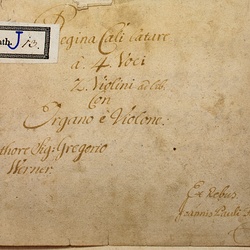 ath. J 13.
Regina Cæli lætare
à. 4. Voci
2. Violini ad lib.
Con
Organo è Violone.
thore Sig: Gregorio
Werner.
Ex Rebus
Joannis Pauli